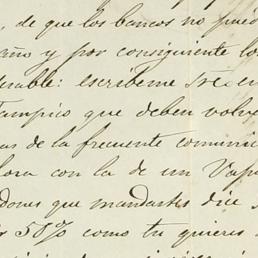 , de que los bancos no pued
año y por consiguiente lo
erable: escribeme
Tampico que deben volve
as de la frecuente comunic
lora con la de un Vap
dones que mandastes dice
ir 50% como tu quieres